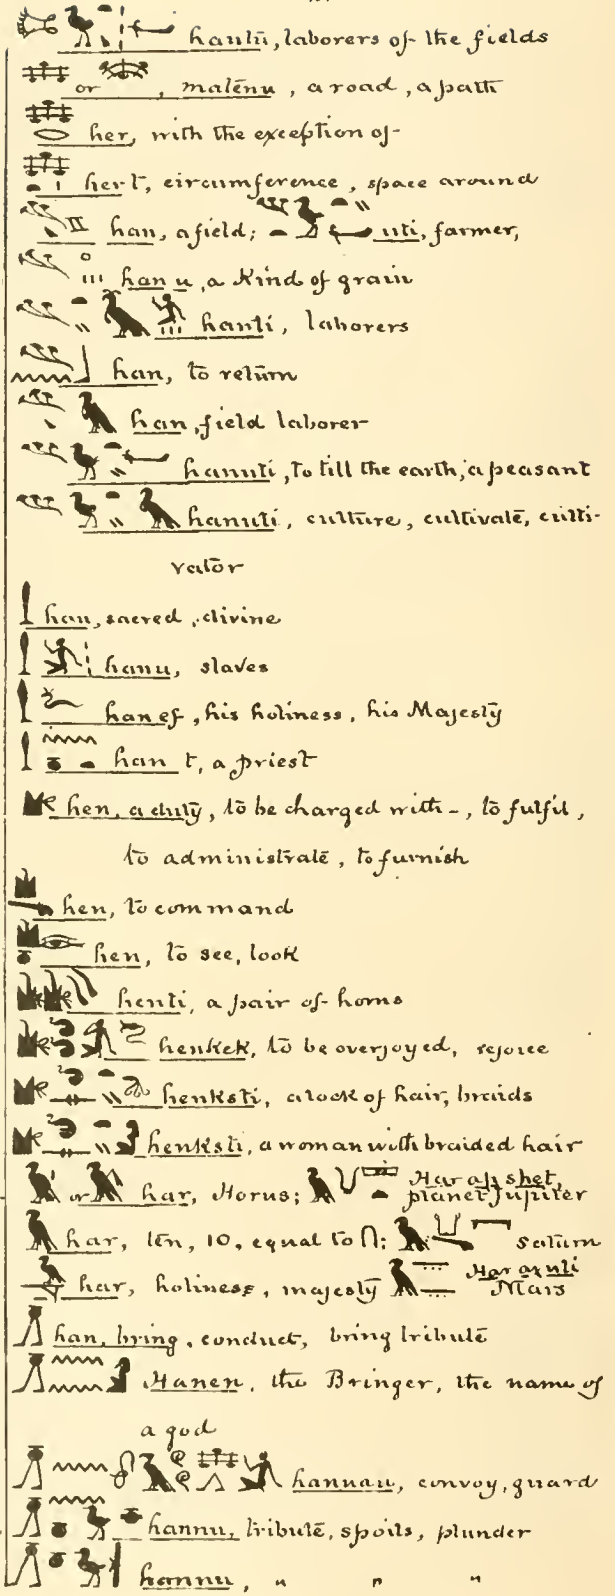 hautū, laborers of the fields
or , matēnu, a road, a path
her, with the exception of-
her t, circumference, space around
han, a field; uti, farmer,
han u, a kind of grain
hanti, laborers
han, to return
han, field laborer
hanuti, to till the earth, a peasant
hanuti, culture, cultivate, culti-
vator
han, sacred, divine
hanu, slaves
han ef, his holiness, his Majesty
han t, a priest
hen, a duty, to be charged with-, to fulfil,
to administrate, to furnish
hen, to command
hen, to see, look
henti, a pair of horns
henkek, to be overjoyed, rejoice
henksti, a lock of hair, braids
henksti, a woman with braided hair
or har, Horus; Har ap shet, planet Jupiter
har, ten, 10, equal to ∩; Saturn
har, holiness, majesty Har axuti Mars
han, bring, conduct, bring tribute
Hanen, the Bringer, the name of
a god
hannau, convoy, guard
hannu, tribute, spoils, plunder
hannu, " " "